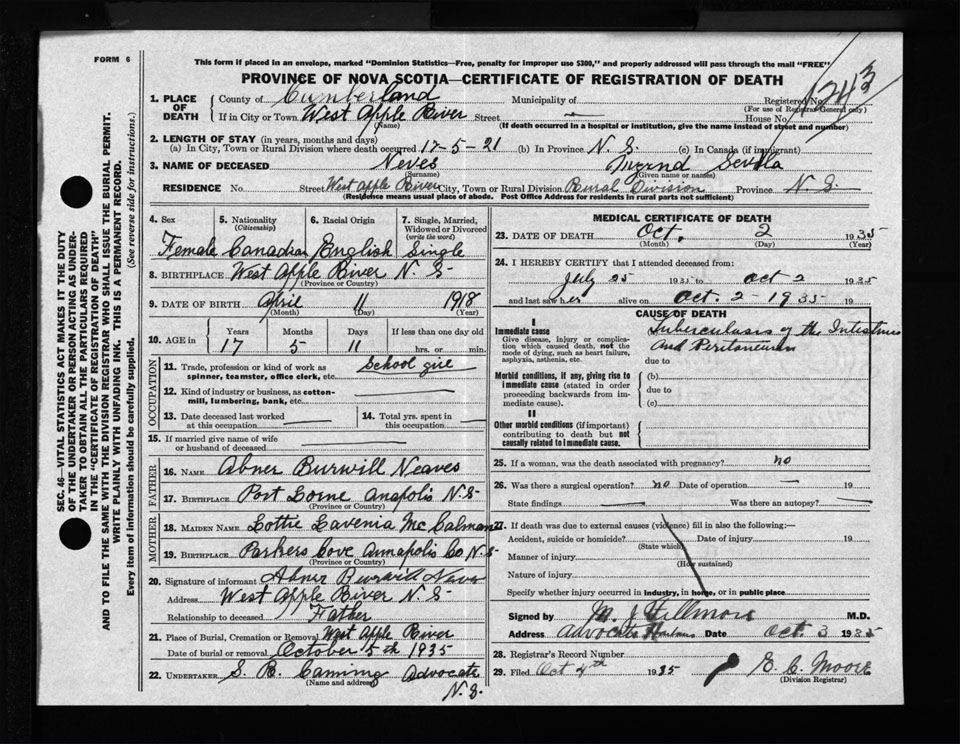 FORM 6
This form if placed in an envelope, marked "Dominion Statistics—Free, penalty for improper use $300," and properly addressed will pass through the mail "FREE"
PROVINCE OF NOVA SCOTIA—CERTIFICATE OF REGISTRATION OF DEATH
SEC. 46—VITAL STATISTICS ACT MAKES IT THE DUTY
OF THE UNDERTAKER OR PERSON ACTING AS UNDER-
TAKER TO OBTAIN ALL THE PARTICULARS REQUIRED
IN THE "CERTIFICATE OF REGISTRATION OF DEATH"
AND TO FILE THE SAME WITH THE DIVISION REGISTRAR WHO SHALL ISSUE THE BURIAL PERMIT.
WRITE PLAINLY WITH UNFADING INK. THIS IS A PERMANENT RECORD.
Every item of information should be carefully supplied. (See reverse side for instructions.)
1. PLACE OF DEATH County of Cumberland Municipality of Registered No. 1243
(For use of Registrar General only)
If in City or Town West Apple River Street House No.
(Name) (If death occurred in a hospital or institution, give the name instead of street and number)
2. LENGTH OF STAY (in years, months and days)
(a) In City, Town or Rural Division where death occurred 17-5-21 (b) In Province N. S. (c) In Canada (if immigrant)
3. NAME OF DECEASED Neves Sevilla
(Surname) (Given name or names)
RESIDENCE No. Street West Apple River City, Town or Rural Division Rural Division Province N. S.
(Residence means usual place of abode. Post Office Address for residents in rural parts not sufficient)
4. Sex 5. Nationality (Citizenship) 6. Racial Origin 7. Single, Married, Widowed or Divorced (write the word)
Female Canadian English Single
8. BIRTHPLACE West Apple River N. S.
(Province or Country)
9. DATE OF BIRTH April 11 1918
(Month) (Day) (Year)
10. AGE in Years Months Days If less than one day old
17 5 11 hrs. or min.
OCCUPATION
11. Trade, profession or kind of work as spinner, teamster, office clerk, etc. School girl
12. Kind of industry or business, as cotton-mill, lumbering, bank, etc.
13. Date deceased last worked at this occupation
14. Total yrs. spent in this occupation
15. If married give name of wife or husband of deceased
FATHER
16. NAME Abner Burwill Neaves
17. BIRTHPLACE Port Lorne Anapolis N. S.
MOTHER
18. MAIDEN NAME Lottie Lavenia McCalman
19. BIRTHPLACE Parkers Cove Annapolis Co N. S.
(Province or Country)
20. Signature of informant Abner Burwill Neves
Address West Apple River N. S.
Relationship to deceased Father
21. Place of Burial, Cremation or Removal West Apple River
Date of burial or removal October 5th 1935
22. UNDERTAKER S. B. Caming Advocate N. S.
(Name and address)
MEDICAL CERTIFICATE OF DEATH
23. DATE OF DEATH Oct. 2 1935
(Month) (Day) (Year)
24. I HEREBY CERTIFY that I attended deceased from:
July 25 1935 to Oct 2 1935
and last saw her alive on Oct. 2-1935 19
CAUSE OF DEATH
I
Immediate cause
Give disease, injury or complication which caused death, not the mode of dying, such as heart failure, asphyxia, asthenia, etc.
Tuberculosis of the Intestines and Peritoneum
due to
Morbid conditions, if any, giving rise to immediate cause (stated in order proceeding backwards from immediate cause).
(b)
due to
(c)
II
Other morbid conditions (if important) contributing to death but not causally related to immediate cause.
25. If a woman, was the death associated with pregnancy? no
26. Was there a surgical operation? no Date of operation 19
State findings Was there an autopsy?
27. If death was due to external causes (violence) fill in also the following:—
Accident, suicide or homicide? Date of injury 19
(State which)
Manner of injury
(How sustained)
Nature of injury
Specify whether injury occurred in industry, in home, or in public place
Signed by M. J. Fillmore M.D.
Address Advocate Harbour Date Oct. 3 1935
28. Registrar's Record Number
29. Filed Oct 4th 1935 E. C. Moore
(Division Registrar)